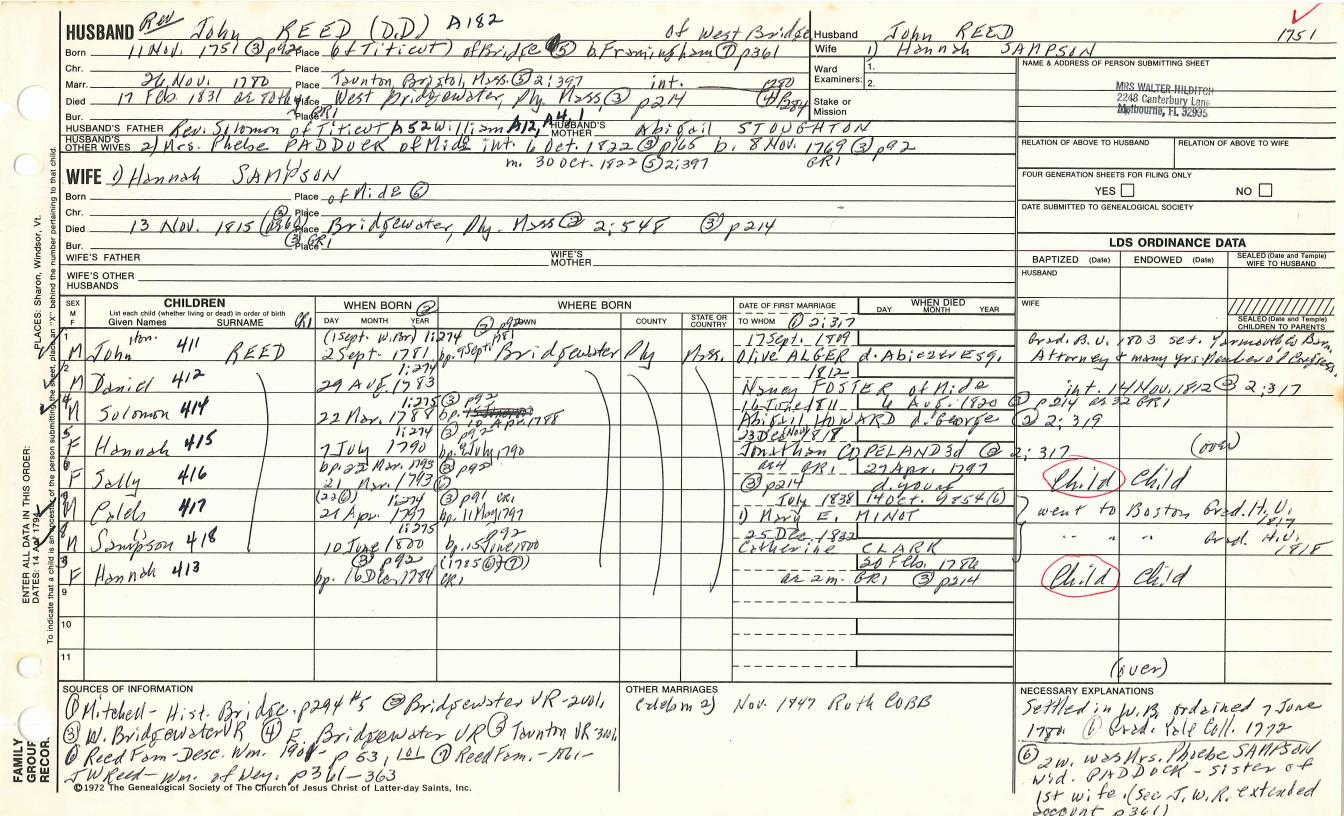 HUSBAND Rev John REED (D.D) A182 of West Bridge
Born 11 Nov. 1751 ③ p92 Place (of Titicut) of Bridge ⑤ b. Framingham ⑦ p361
Chr. Place
Marr. 26 Nov. 1780 Place Taunton, Bristol, Mass. ③ 2:397 int. 1780
Died 17 Feb 1831 Place West Bridgewater, Ply. Mass ③ p214
Bur. Place GR1
HUSBAND'S FATHER Rev. Solomon of Titicut A52 William A12, A4, 1 HUSBAND'S MOTHER Abigail STOUGHTON
HUSBAND'S OTHER WIVES 2) Mrs. Phebe PADDOCK of Mide int. 6 Oct. 1822 ③ p165 b. 8 Nov. 1769 ③ p92
m. 30 Oct. 1822 ⑤ 2:397 GR1
WIFE 1) Hannah SAMPSON
Born Place of Mide ⑥
Chr. Place
Died 13 Nov. 1815 Place Bridgewater, Ply. Mass ② 2:548 ③ p214
Bur. Place ③ GR1
WIFE'S FATHER WIFE'S MOTHER
WIFE'S OTHER HUSBANDS
Husband John REED 1751
Wife 1) Hannah SAMPSON
Ward Examiners: 1.
2.
Stake or Mission
NAME & ADDRESS OF PERSON SUBMITTING SHEET
MRS WALTER HILDITCH
2248 Canterbury Lane
Melbourne, FL 32935
RELATION OF ABOVE TO HUSBAND RELATION OF ABOVE TO WIFE
FOUR GENERATION SHEETS FOR FILING ONLY
YES NO
DATE SUBMITTED TO GENEALOGICAL SOCIETY
LDS ORDINANCE DATA
BAPTIZED (Date) ENDOWED (Date) SEALED (Date and Temple) WIFE TO HUSBAND
HUSBAND
WIFE
SEALED (Date and Temple) CHILDREN TO PARENTS
SEX M F
CHILDREN
List each child (whether living or dead) in order of birth
Given Names SURNAME GR1
WHEN BORN ②
DAY MONTH YEAR
WHERE BORN
TOWN COUNTY STATE OR COUNTRY
DATE OF FIRST MARRIAGE
TO WHOM ① 2:317
WHEN DIED
DAY MONTH YEAR
1 M Hon. John 411 REED (1 Sept. W.Br) 1:274 2 Sept. 1781 ③ p92 bp. 9 Sept. 1781 Bridgewater Ply Mass. 17 Sept. 1809 Olive ALGER d. Abiezer Esq. Grad. B.U. 1803 set. Yarmouth
Attorney & many yrs Member of Congress
2 M Daniel 412 1:274 29 Aug. 1783 1812 Nancy FOSTER of Mide int. 14 Nov. 1812 ② 2:317
4 M Solomon 414 1:275 22 Mar. 1788 ③ p92 bp. 10 Apr. 1788 16 June 1811 Abigail HOWARD d. George 6 Aug. 1820 p214 as 32 GR1
② 2:319
5 F Hannah 415 1:274 7 July 1790 ③ p92 bp. 9 July 1790 23 Dec (Nov) 1818 Jonathan COPELAND 3d ② 2:317 (over)
6 F Sally 416 bp. 25 Mar. 1793 21 Mar. 1793 ③ p92 as 4 GR1 ③ p214 27 Apr. 1797 d. young Child Child
7 M Caleb 417 (22 ⑥) 1:274 21 Apr. 1797 ③ p91 GR1 bp. 11 May 1797 July 1838 1) Mary E. MINOT 14 Oct. 1854 (6) went to Boston Grad. H.U. 1817
8 M Sampson 418 1:275 10 June 1800 p92 bp. 15 June 1800 25 Dec. 1832 Catherine CLARK " " " Grad. H.U. 1818
3 F Hannah 413 ③ p92 bp. 16 Dec. 1784 (1785 ⑥ & ⑦) GR1 as 2m. GR1 20 Feb. 1786 ③ p214 Child Child
9
10
11
(over)
SOURCES OF INFORMATION
① Mitchell - Hist. Bridge. p294 #5 ② Bridgewater VR - 2 vol.
③ W. Bridgewater VR ④ E. Bridgewater VR ⑤ Taunton VR - 3 vol.
⑥ Reed Fam - Desc. Wm. 1901 - p 53, 101 ⑦ Reed Fam. - 1861 -
J W Reed - Wm. of Wey. p361-363
OTHER MARRIAGES
Caleb m 2) Nov. 1847 Ruth COBB
NECESSARY EXPLANATIONS
Settled in W.B. ordained 7 June
1780 ⑥ Grad. Yale Coll. 1772
⑥ 2 w. was Mrs. Phoebe SAMPSON
wid. PADDOCK - sister of
1st wife. (See J.W.R. extended
account p361)
©1972 The Genealogical Society of The Church of Jesus Christ of Latter-day Saints, Inc.
FAMILY GROUP RECOR.
ENTER ALL DATA IN THIS ORDER:
DATES: 14 Apr 1794
PLACES: Sharon, Windsor, Vt.
To indicate that a child is an ancestor of the person submitting the sheet, place an "X" behind the number pertaining to that child.